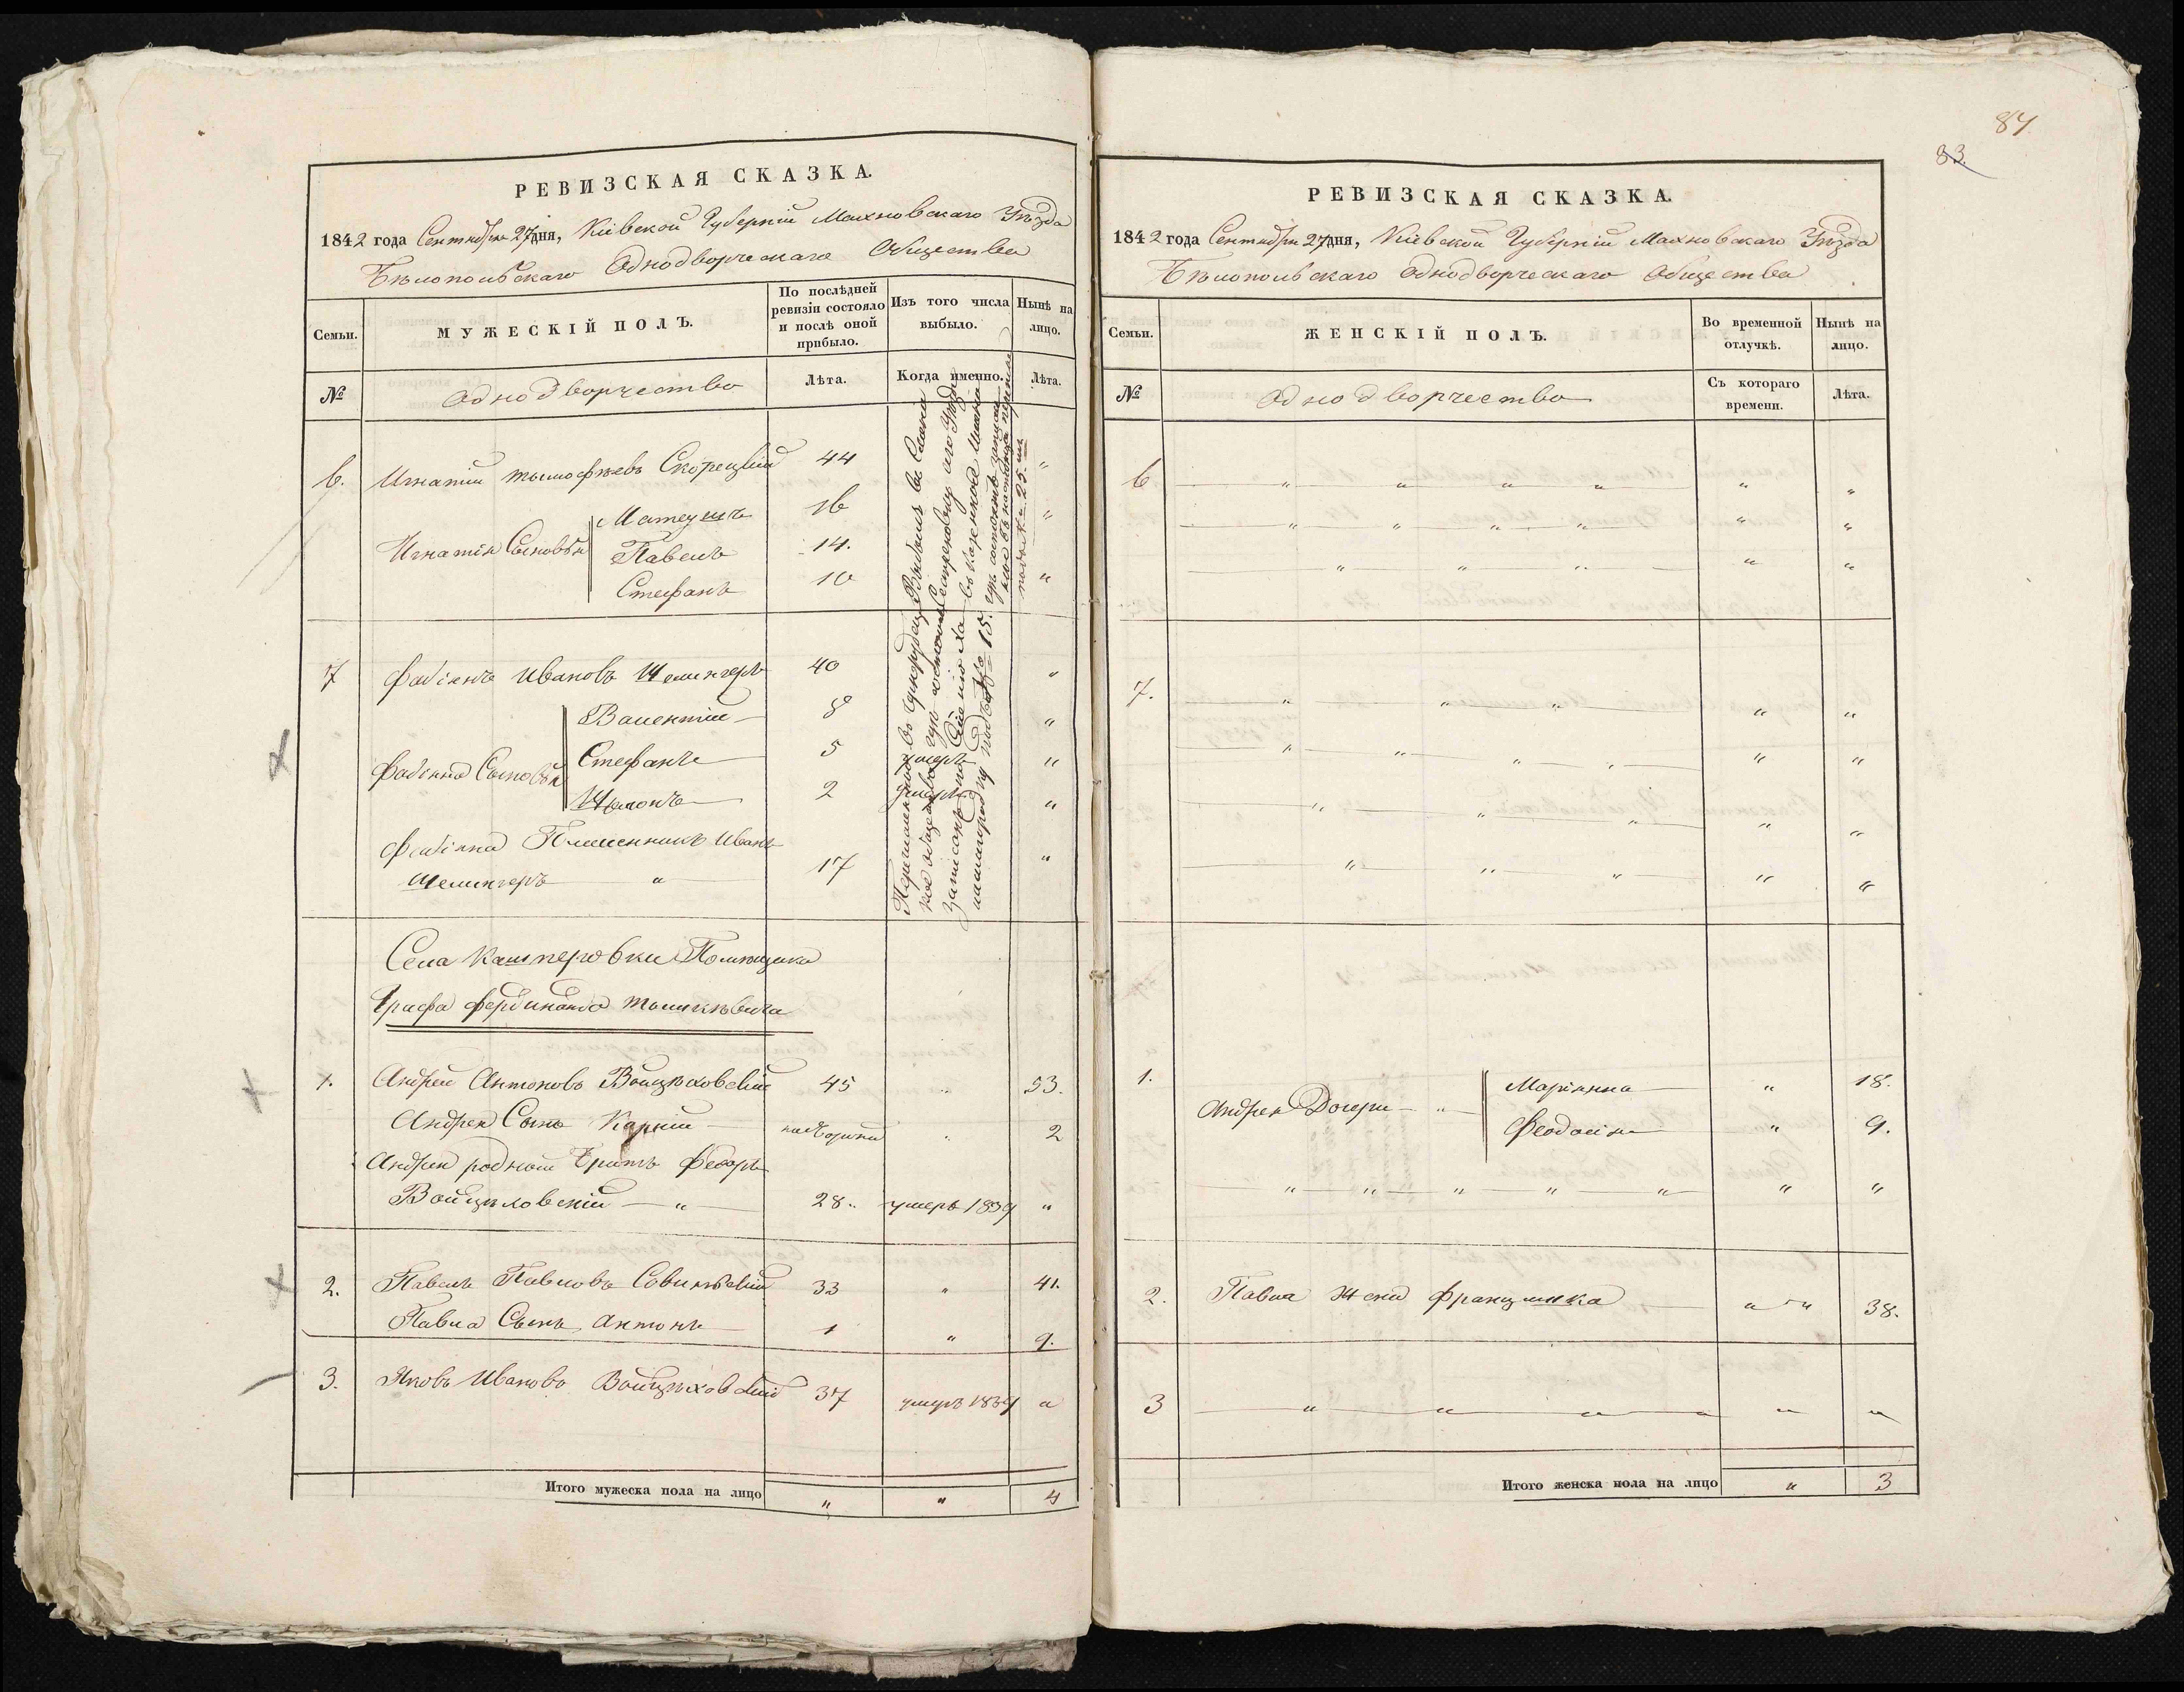 84
83.
РЕВИЗСКАЯ СКАЗКА.
1842 года Сентября 27 дня, Кіевской Губерніи Махновскаго Уѣзда
Бѣлопольскаго Однодворческаго Общества
Семьи.
МУЖЕСКІЙ ПОЛЪ.
По послѣдней ревизіи состояло и послѣ оной прибыло.
Изъ того числа выбыло.
Нынѣ на лицо.
№
Однодворчество
Лѣта.
Когда именно.
Лѣта.
6. Игнатій Тымофѣевъ Скорецкій 44 "
Матеушъ 16 "
Игнатія Сыновья Павелъ 14.
Стефанъ 10 "
7 Фабіянъ Ивановъ 40 "
Валентій 8 "
Фабіяна Сыновья Стефанъ 5 умеръ "
2 умеръ "
Фабіяна Племенникъ Иванъ
" 17 "
Села Кашперовки Помѣщика
Графа Фердинанда Тышкѣвича
1. Андрей Антоновъ Войцѣховскій 45 " 53.
Андрея Сынъ 2
Андрея родный Братъ Федоръ
Войцѣховскій " 28. умеръ 1839 "
2. Павелъ Павловъ 33 " 41.
Павла Сынъ Антонъ 1 " 9.
3. Яковъ Ивановъ Войцѣховскій 37 умеръ 1839 "
Итого мужеска пола на лицо " " 4
РЕВИЗСКАЯ СКАЗКА.
1842 года Сентября 27 дня, Кіевской Губерніи Махновскаго Уѣзда
Бѣлопольскаго Однодворческаго Общества
Семьи.
ЖЕНСКІЙ ПОЛЪ.
Во временной отлучкѣ.
Нынѣ на лицо.
№
Однодворчество
Съ котораго времени.
Лѣта.
6 " " " " " "
" " " " " "
" " " " "
7. " " " " "
" " " " " "
" " " " "
" " " " "
1. Маріянна " 18.
Андрея Дочери " Феодосія " 9.
" " " " " " "
2. Павла жена Францишка " " 38.
3 " " " " " "
Итого женска пола на лицо " 3